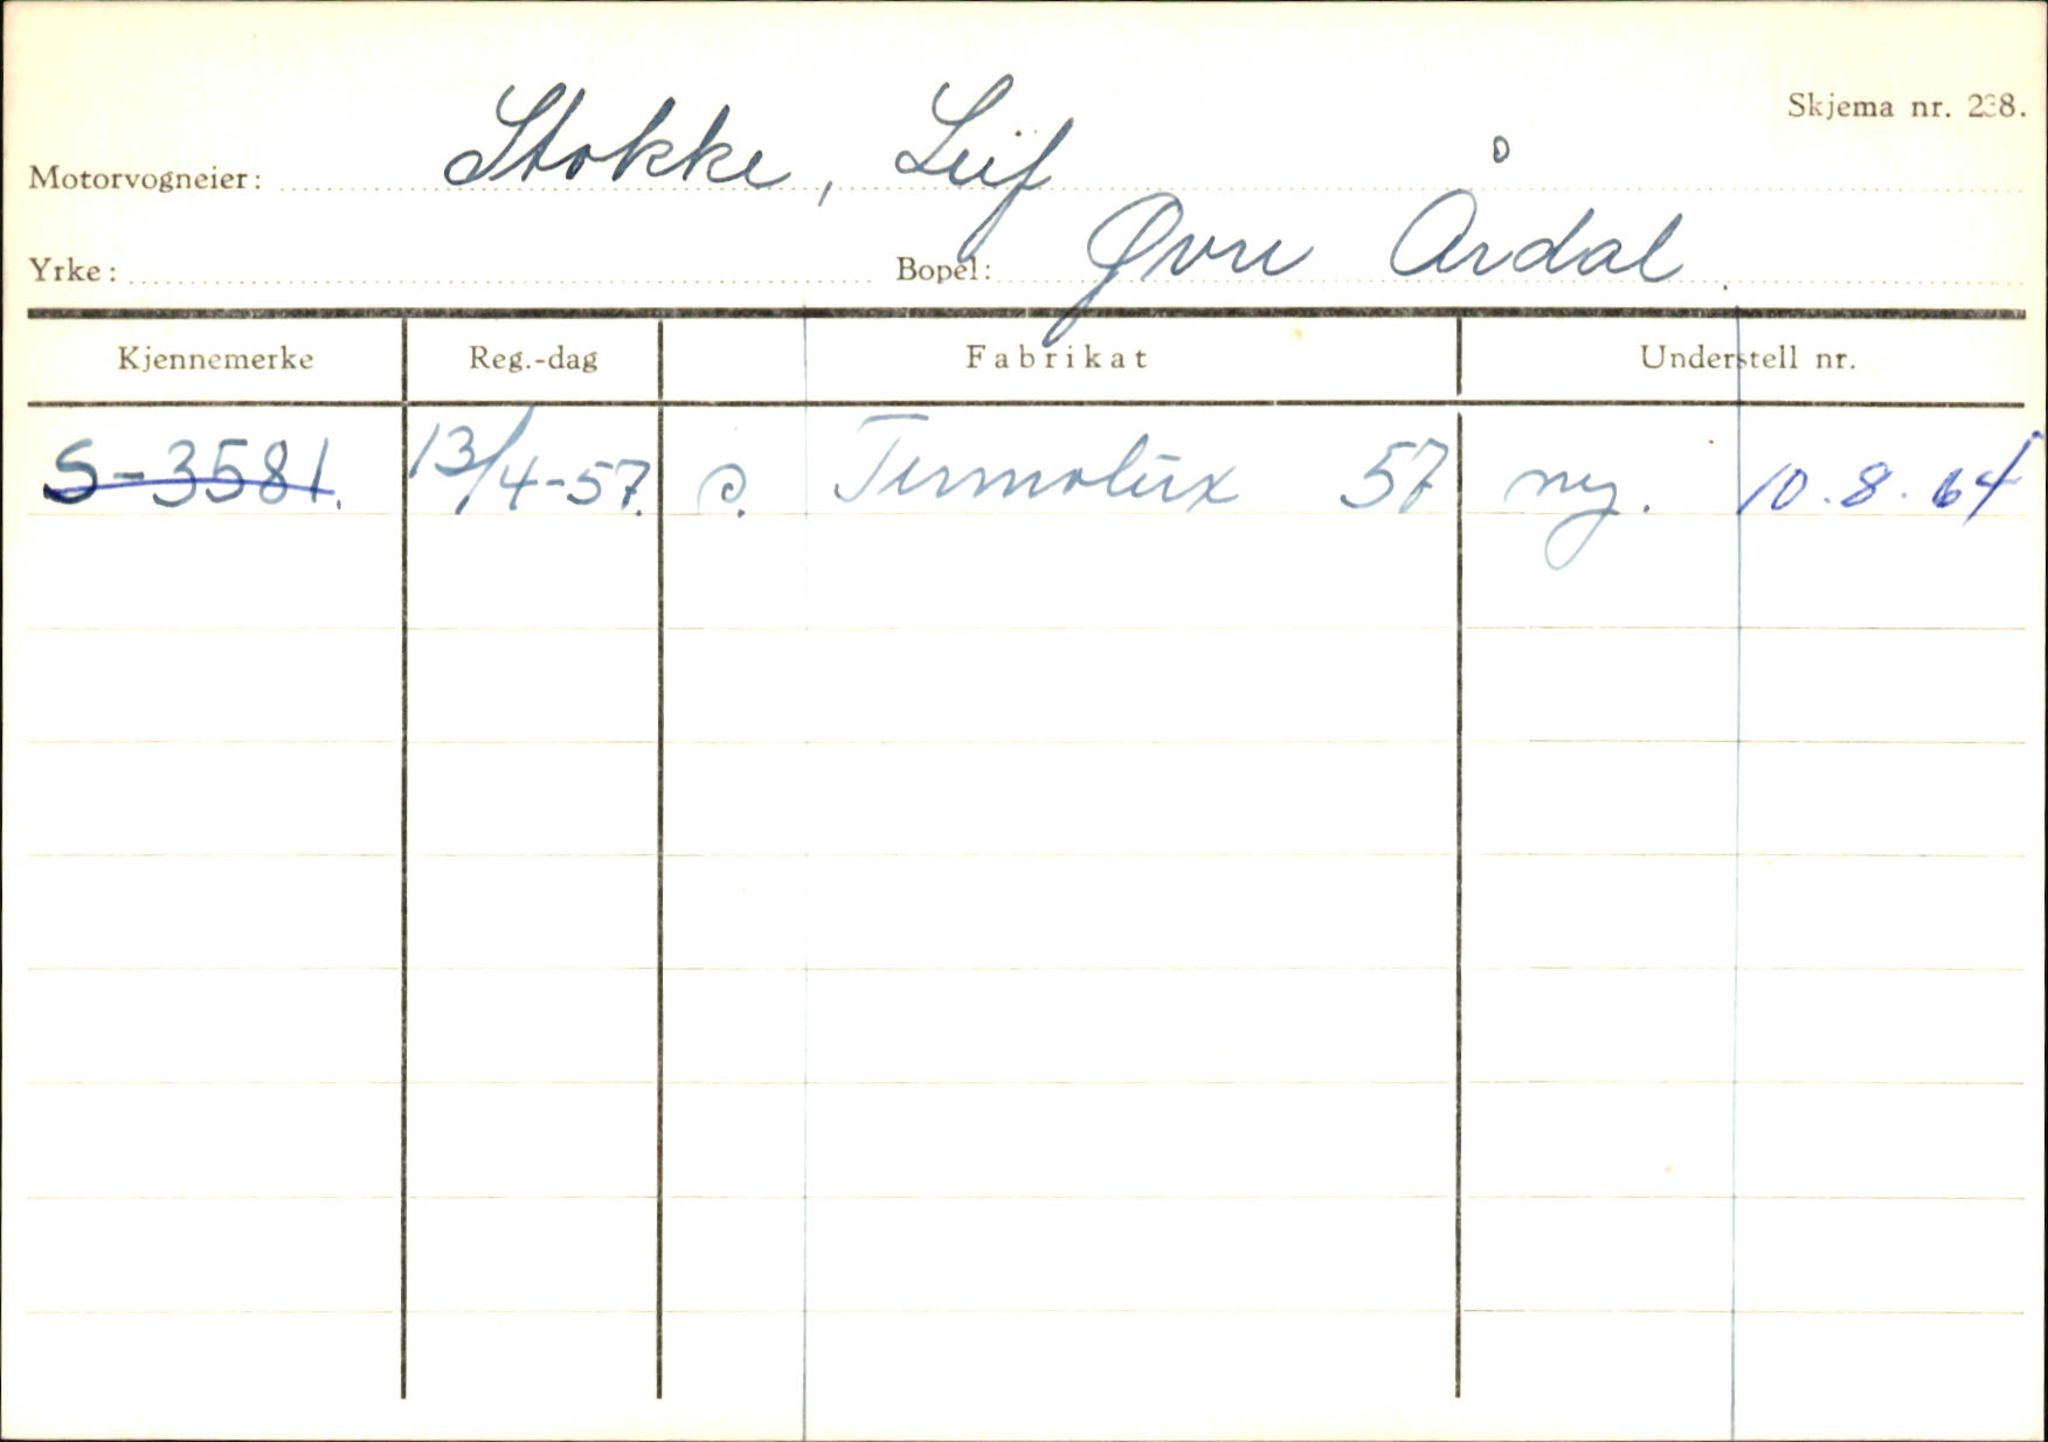 Skjema nr. 238.
Motorvogneier: Stokke, Leif
Yrke: Bopel: Øvre Årdal.
Kjennemerke Reg.-dag Fabrikat Understell nr.
S-3581. 13/4-57. p. Termolux 57 ny. 10.8.64